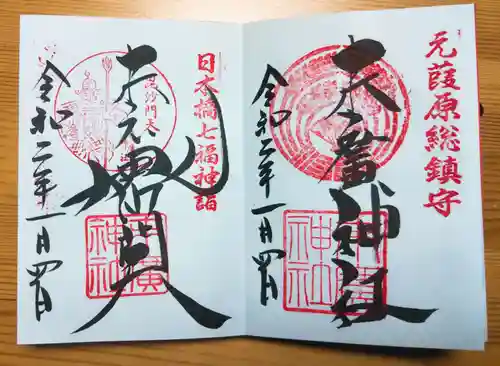 元葭原総鎮守
末廣神社
令和二年一月四日
末廣
神社
日本橋七福神詣
毘沙門天
毘沙門天
令和二年一月四日
末廣
神社